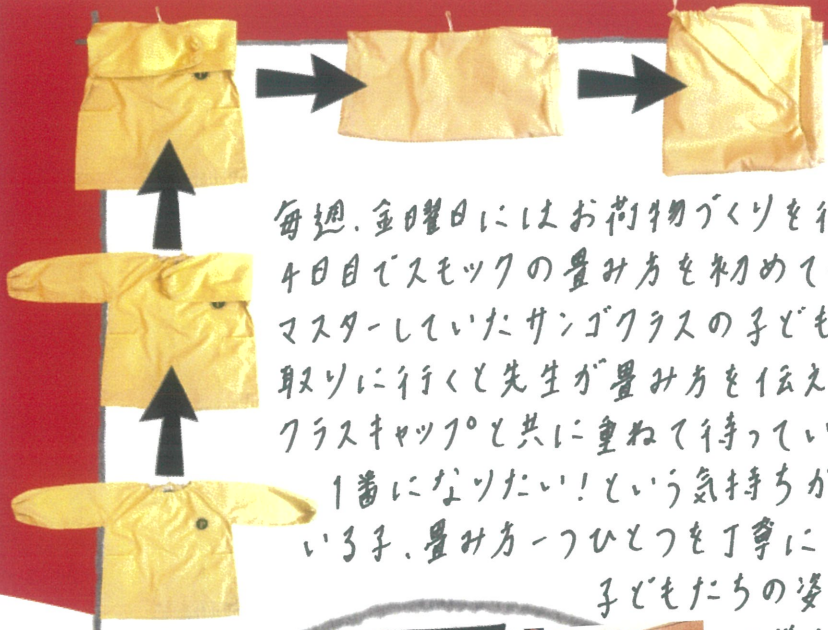 毎週、金曜日にはお荷物づくりを行
4日目でスモックの畳み方を初めて
マスターしていたサンゴクラスの子ども
取りに行くと先生が畳み方を伝え
クラスキャップと共に重ねて待ってい
1番になりたい!という気持ちが
いる子、畳み方一つひとつを丁寧に
子どもたちの姿